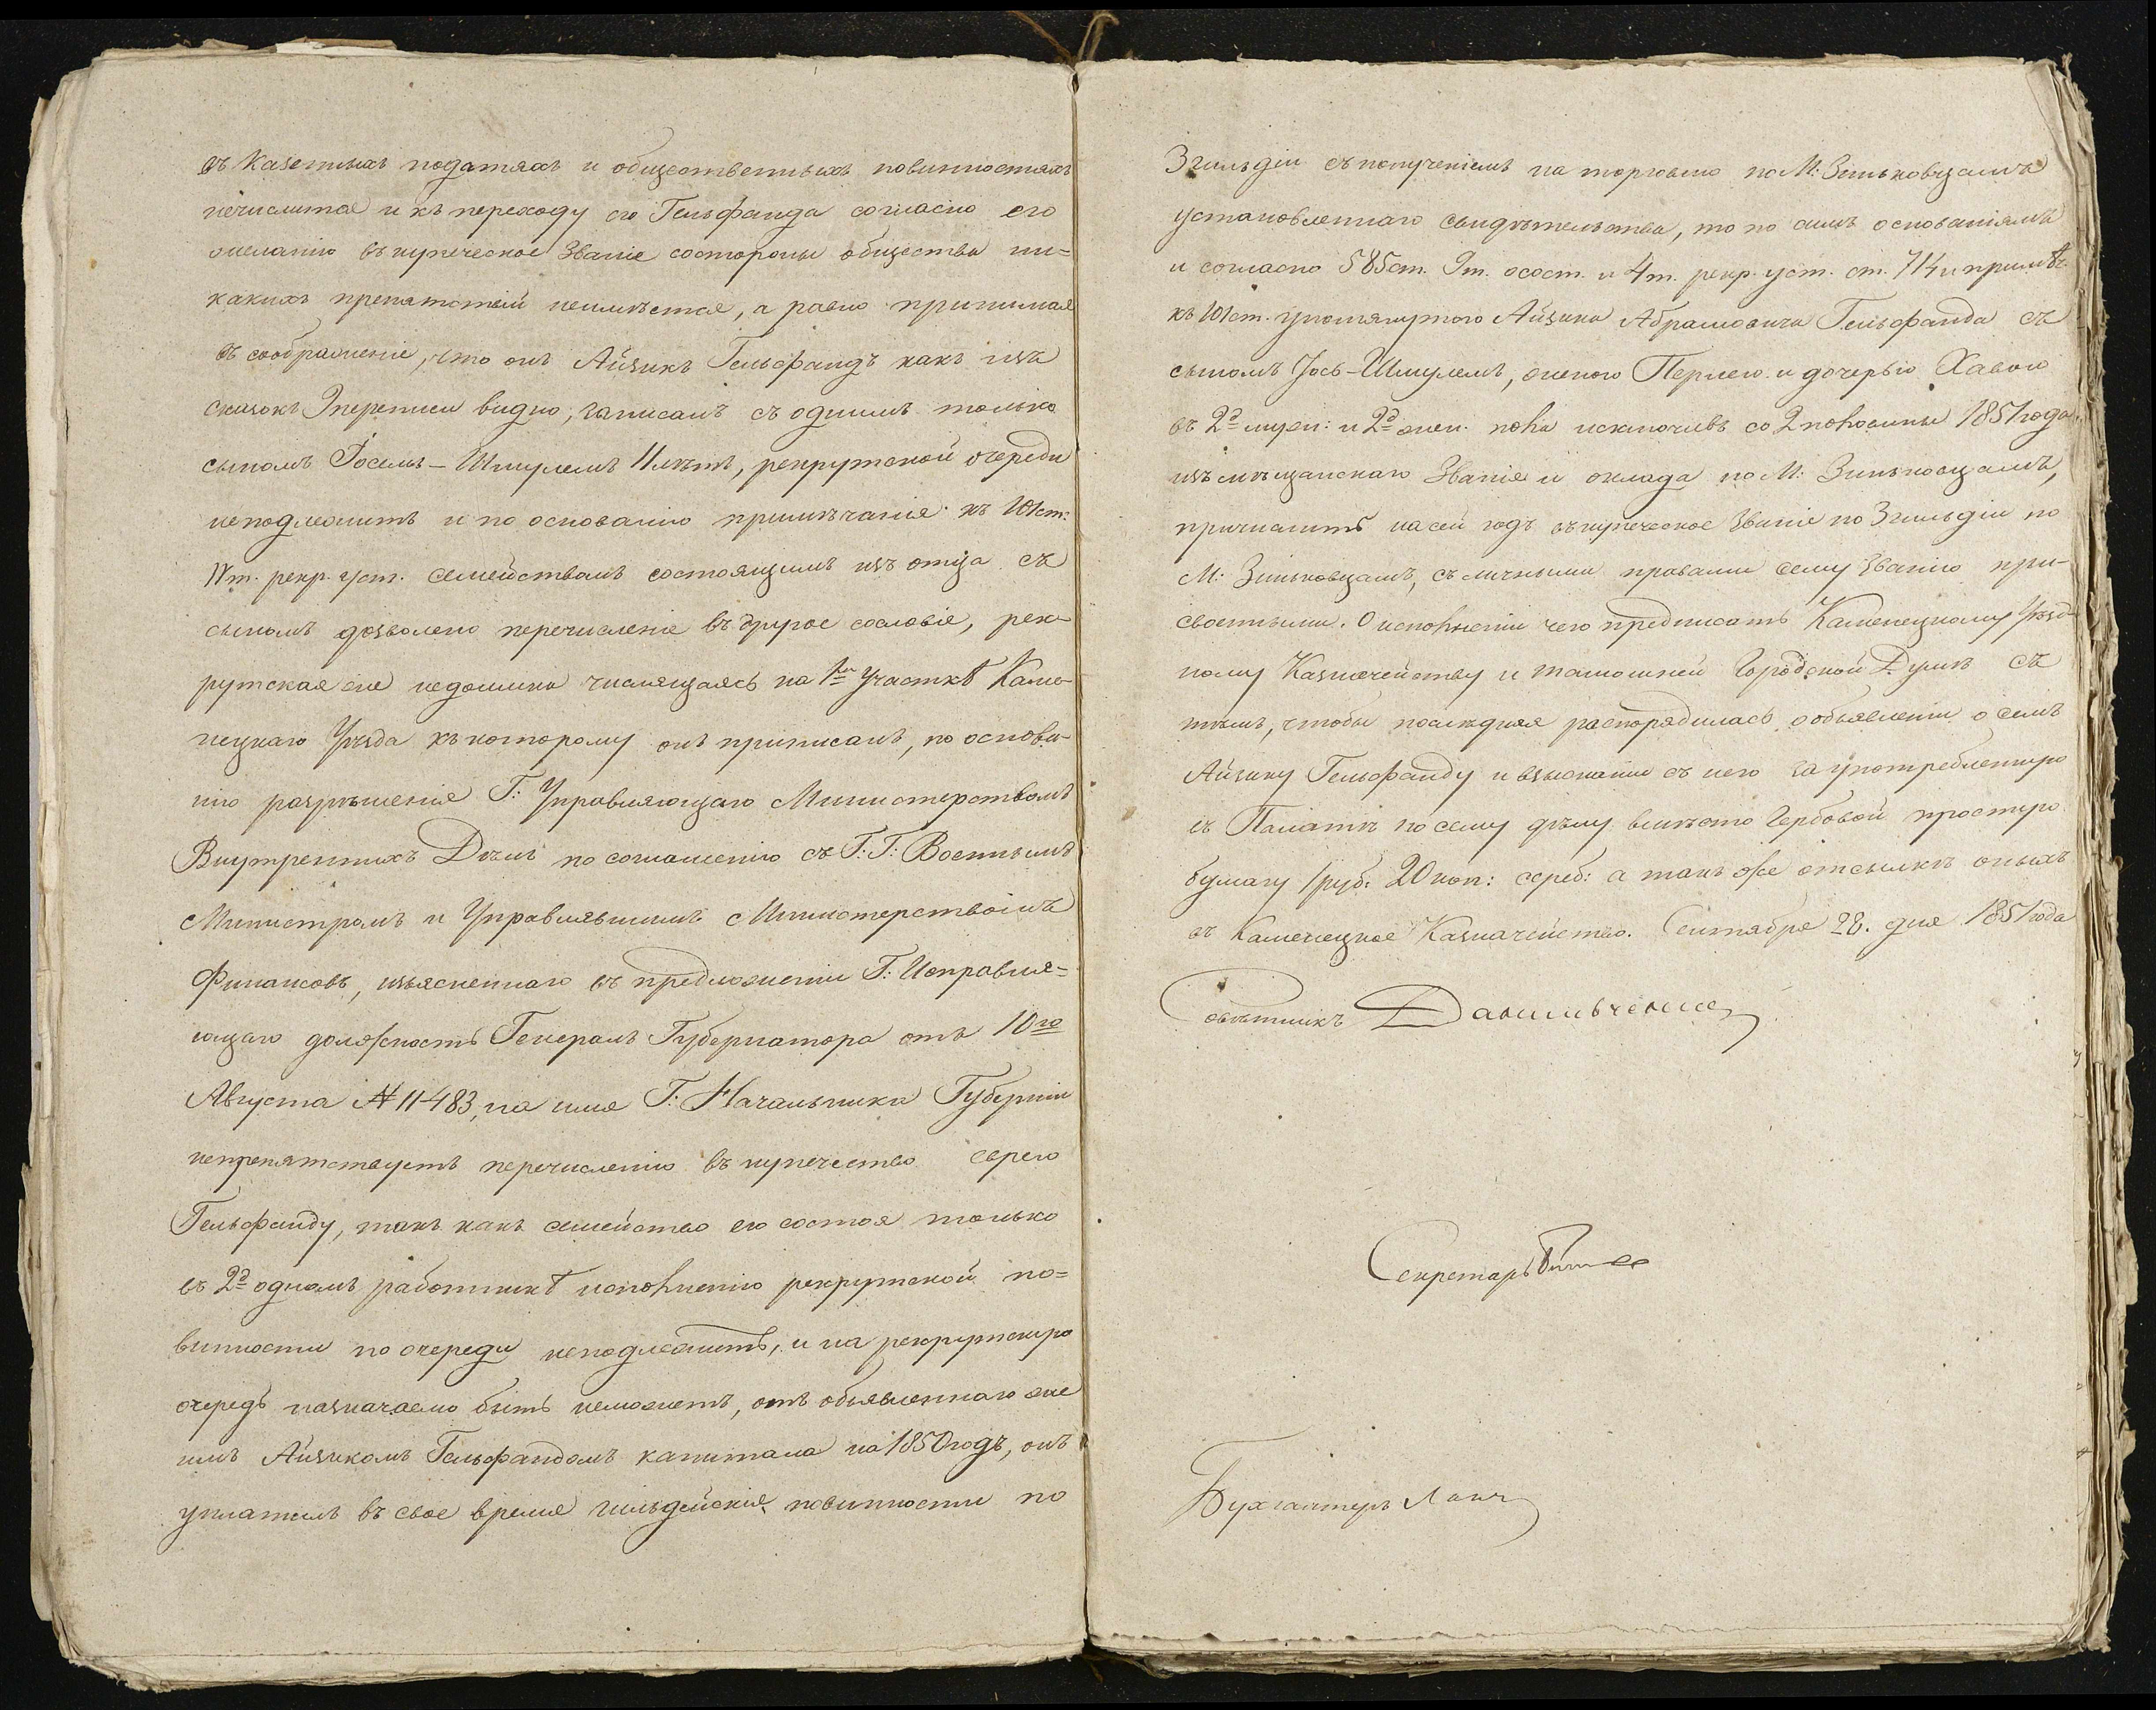 въ Казенныхъ податяхъ и общественныхъ повинностяхъ
нечислится и къ переходу его Гельфанда согласно его
желанію въ купеческое Званіе состороны общества ни=
какихъ препятствій неимѣется, а равно принимая
въ соображеніе, что онъ Айзикъ Гельфандъ какъ изъ
сказокъ 9 переписи видно, записанъ съ однимъ только
сыномъ Іосемъ-Шмулемъ 11 лѣтъ, рекрутской очереди
неподлежитъ и по основанію примѣчанія къ 101 ст.
IV т. рекр. уст. семействамъ состоящимъ изъ отца съ
сыномъ дозволено перечисленіе въ другое сословіе, рек-
рутская же недоимка числящаясь на 1мъ Участкѣ Каме-
нецкаго Уѣзда къ которому онъ приписанъ, по основа-
нію разрѣшенія Г: Управляющаго Министерствомъ
Внутреннихъ Дѣлъ по соглашенію съ Г: Г: Военнымъ
Министромъ и Управлявшимъ Министерствомъ
Финансовъ, изъясненнаго въ предложеніи Г: Исправля=
ющаго должность Генералъ Губернатора отъ 10го
Августа № 11483, на имя Г: Начальника Губерніи
непрепятствуетъ перечисленію въ купечество еврею
Гельфанду, такъ какъ семейство его состоя только
въ 2д одномъ работникѣ исполненію рекрутской по=
винности по очереди неподлежитъ, и на рекрутскую
очередь назначаемо быть неможетъ, отъ объявленнаго же
имъ Айзикомъ Гельфандомъ капитала на 1850 годъ, онъ
уплатилъ въ свое время гильдейскія повинности по
3 гильдіи съ полученіемъ на торговлю по М: Зиньковцамъ
установленнаго свидѣтельства, то по симъ основаніямъ
и согласно 585 ст. 9 т. о сост. и 4 т. рекр. уст. ст. 714 и примѣч.
къ 101 ст. упомянутого Айзика Абрамовича Гельфанда съ
сыномъ Іось-Шмулемъ, женою Перлею и дочерью Хавою
въ 2д муж: и 2д жен. пола исключивъ со 2 половины 1851 года
изъ мѣщанскаго Званія и оклада по М: Зиньковцамъ,
причислить на сей годъ въ купеческое Званіе по 3 гильдіи по
М: Зиньковцамъ, съ личными правами сему Званію при-
своенными. О исполненіи чего предписать Каменецкому Уѣзд-
ному Казначейству и тамошней Городской Думѣ съ
тѣмъ, чтобы послѣдняя распорядилась о объявленіи о семъ
Айзику Гельфанду и взысканіи съ него за употребленную
въ Палатѣ по сему дѣлу вмѣсто Гербовой простую
бумагу 1 руб. 20 коп: сереб: а такъ же отсылкѣ оныхъ
въ Каменецкое Казначейство. Сентября 28. дня 1851 года
Совѣтникъ
Секретарь
Бухгалтеръ